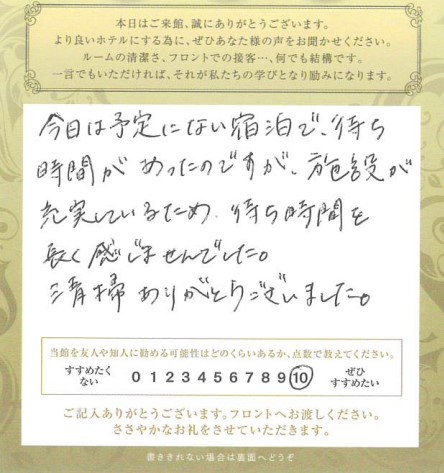 本日はご来館、誠にありがとうございます。
より良いホテルにする為に、ぜひあなた様の声をお聞かせください。
ルームの清潔さ、フロントでの接客…、何でも結構です。
一言でもいただければ、それが私たちの学びとなり励みになります。
今日は予定にない宿泊で、待ち
時間があったのですが、施設が
充実しているため、待ち時間を
長く感じませんでした。
清掃ありがとうございました。
当館を友人や知人に勧める可能性はどのくらいあるか、点数で教えてください。
すすめたくない 0 1 2 3 4 5 6 7 8 9 10 ぜひすすめたい
ご記入ありがとうございます。フロントへお渡しください。
ささやかなお礼をさせていただきます。
書ききれない場合は裏面へどうぞ